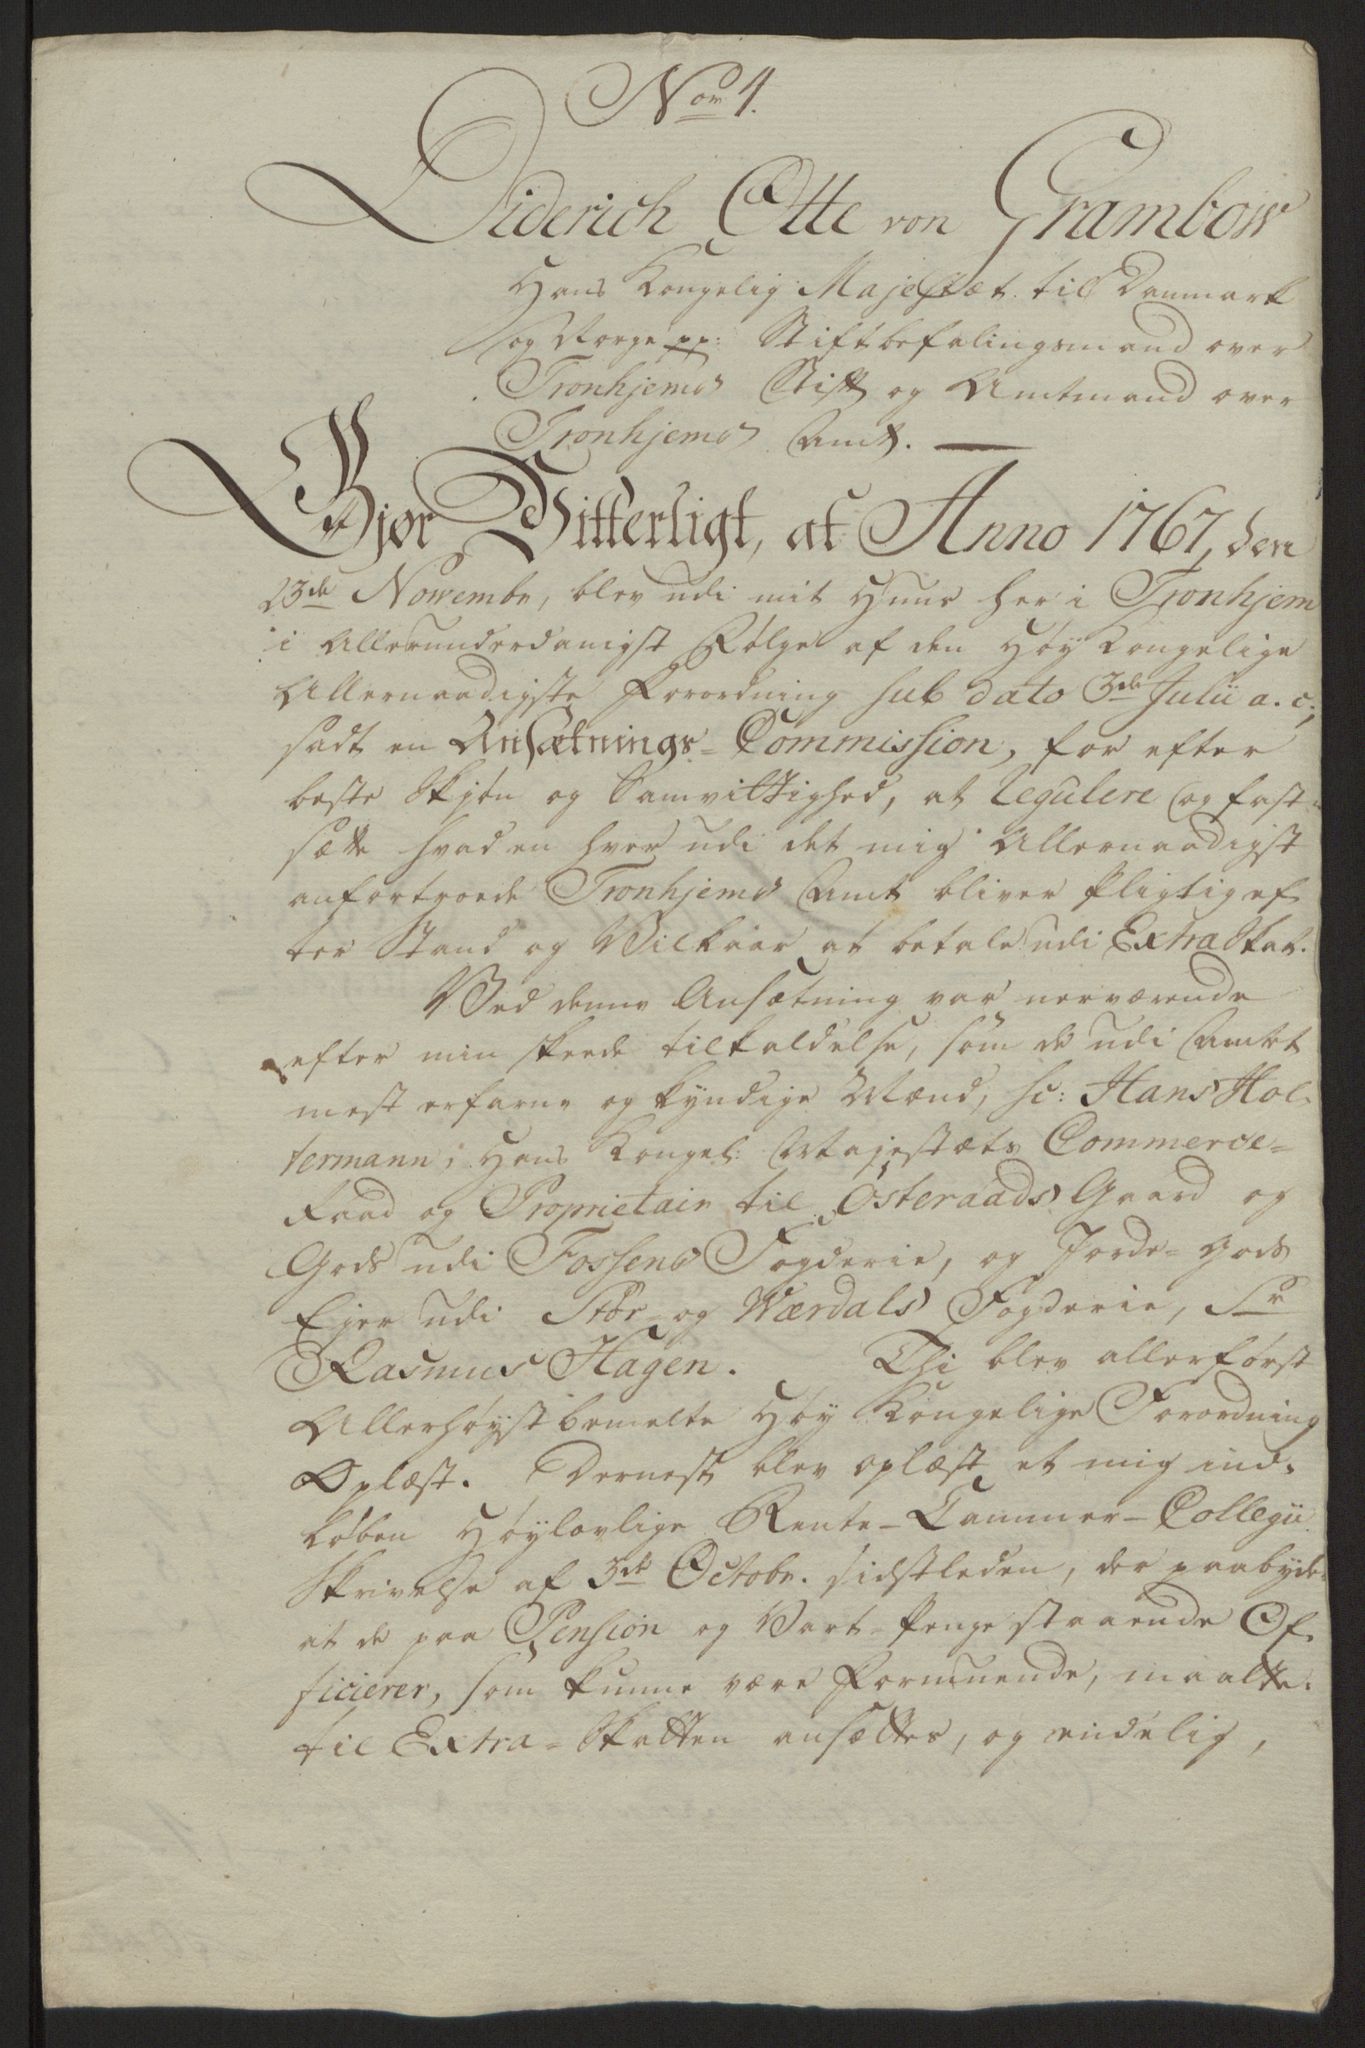 No: 4.
Diderich Otte von Grambow
Hans Kongelig: Majestæt til Danmark
og Norge pp: Stiftbefalingsmand over
Tronhjems Stift og Amtmand over
Tronhjems Amt.
Gjør Vitterligt, at Anno 1767, den
23de Novembr, blev udi mit Huus her i Tronhjem
i Allerunderdanigst Følge af den Høy Kongelige
Allernaadigste Forordning sub dato 3de Julii a. c:,
sadt en Ansætnings-Commission, for efter
beste Skjøn og Samvittighed, at regulere og fast-
sætte hvad en hver udi det mig Allernaadigst
anfortroede Tronhjems Amt bliver pligtig ef-
ter Stand og Vilkaar at betale udi Extra Skat.
Ved denne Ansætning var nerværende
efter min skeede tilkaldelse, som de udi Amtet
mest erfarne og kyndige Mænd, sc: Hans Hol-
termann, Hans Kongel: Majestæts Commerce-
Raad og Proprietair til Østeraads Gaard og
Gods udi Fossens Fogderie, og Jorde-Gods
Ejer udi Stør- og Værdals Fogderie, Sr
Rasmus Hagen. Thi blev allerførst
Allerhøystbemelte Høy Kongelige Forordning
Oplæst. Dernest blev oplæst et mig ind-
løben Høylovlige Rente-Cammer-Collegii
Skrivelse af 3de Octobr. sidstleden, der paabyder
at de paa Pension og Vart-penge staaende Of-
ficierer, som kunne være formuende, maatte
til Extra-Skatten ansættes, og endelig,